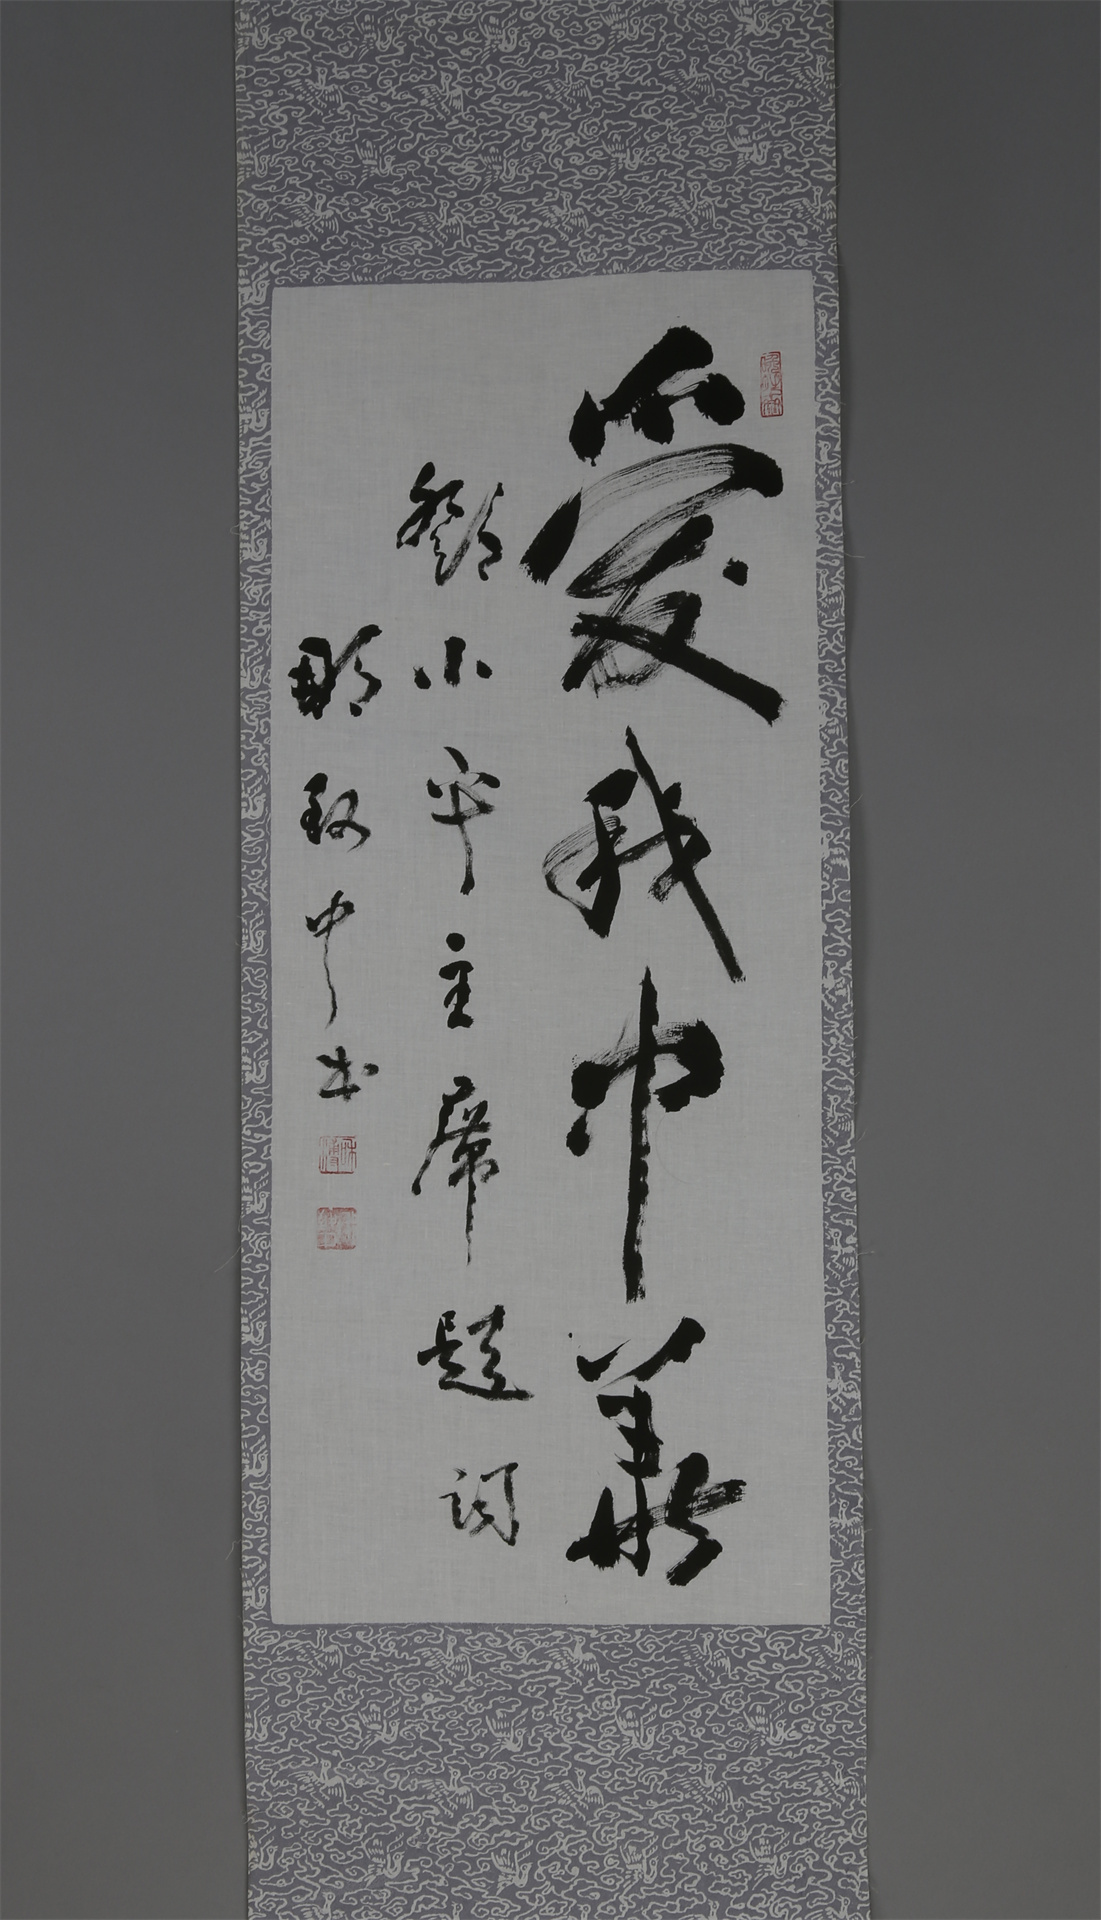 愛我中華
鄧小平主席題詞
那致中书